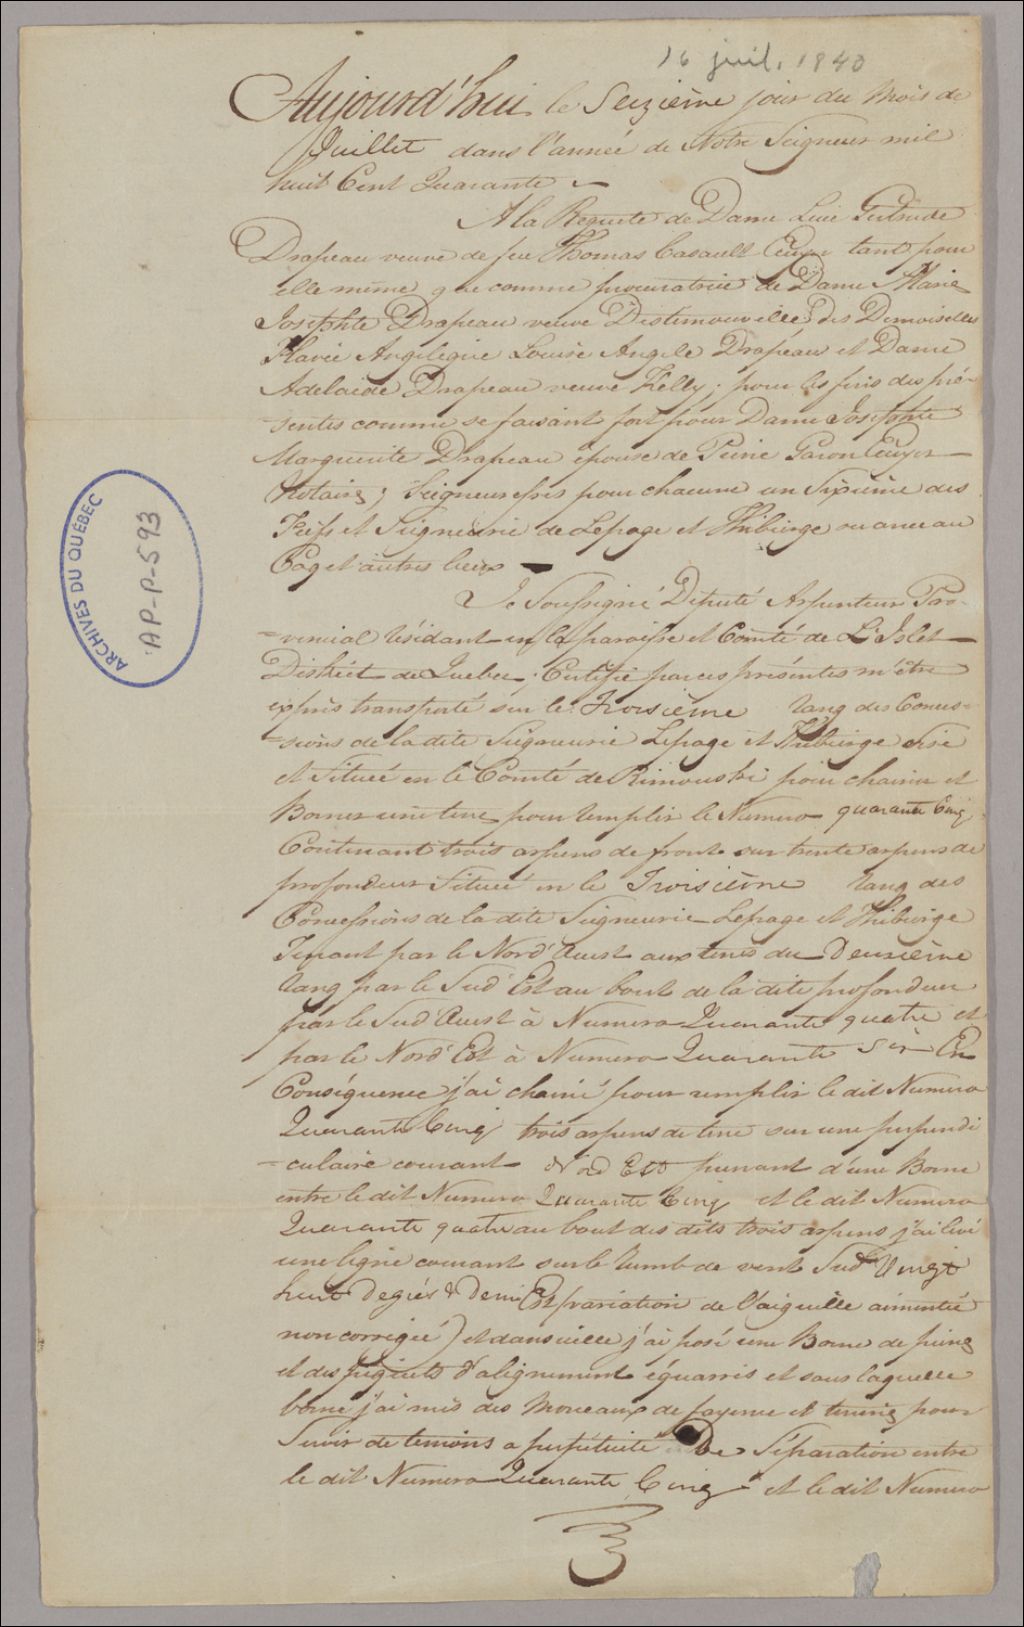 16 juil. 1840
Aujourd'hui le Seizième jour du Mois de
Juillet dans l'année de Notre Seigneur mil
huit Cent Quarante
A la Requete de Dame Luce Gertrude
Drapeau veuve de feu Thomas Casault Ecuyer tant pour
elle même que comme procuratrice de Dame Marie
Josephte Drapeau veuve Distimauville, des Demoiselles
Flavie Angelique Louise Angele Drapeau et Dame
Adelaide Drapeau veuve Kelly; pour les fins des pré-
-sentes comme se faisant fort pour Dame Josephte
Marguerite Drapeau épouse de Pierre Garon Ecuyer
Notaire; Seigneuresses pour chacune un Sixieme des
Fiefs et Seigneurie de Lepage et Thibierge ou anceau
Coq et autres lieux
Je Soussigné Député Arpenteur Pro-
-vincial résidant en la paroisse et Comté de L'Islet
District de Quebec; Certifie par ces présentes m'être
exprès transporté sur le Troisième rang des Conces-
-sions de la dite Seigneurie Lepage et Thibierge Sise
et Située en le Comté de Rimouski pour chainer et
Borner une terre pour remplir le Numero quarante Cinq
Contenant trois arpens de front sur trente arpens de
profondeur Située en le Troisième rang des
Concessions de la dite Seigneurie Lepage et Thibierge
Tenant par le Nord Ouest aux terres du Deuxième
rang par le Sud Est au bout de la dite profondeur
par le Sud Ouest à Numero Quarante quatre et
par le Nord Est à Numero Quarante Six En
Conséquence j'ai chainé pour remplir le dit Numero
Quarante Cinq trois arpens de terre sur une perpendi
-culaire courant Nord Est prenant d'une Borne
entre le dit Numero Quarante Cinq et le dit Numero
Quarante quatre au bout des dits trois arpens j'ai tiré
une ligne courant sur le rumb de vent Sud Vingt
huit degrés & demi Est (variation de l'aiguille aimentée
non corrigée) et dans icelle j'ai posé une Borne de pierre
et des piquets d'alignement équarris et sous laquelle
borne j'ai mis des Morceaux de fayence et terrerie pour
Servir de temoins a perpétuité De Séparation entre
le dit Numero Quarante Cinq et le dit Numero
ARCHIVES DU QUÉBEC
AP-P-593